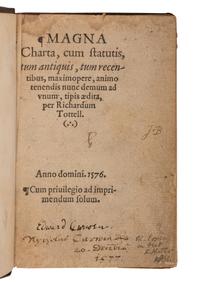 ¶ MAGNA
Charta, cum statutis,
tum antiquis, tum recen-
tibus, maximopere, animo
tenendis nunc demum ad
vnum, tipis ædita,
per Richardum
Tottell.
(∴)
JB
Anno domini. 1576.
¶ Cum priuilegio ad impri-
mendum solum.
Edward
1577